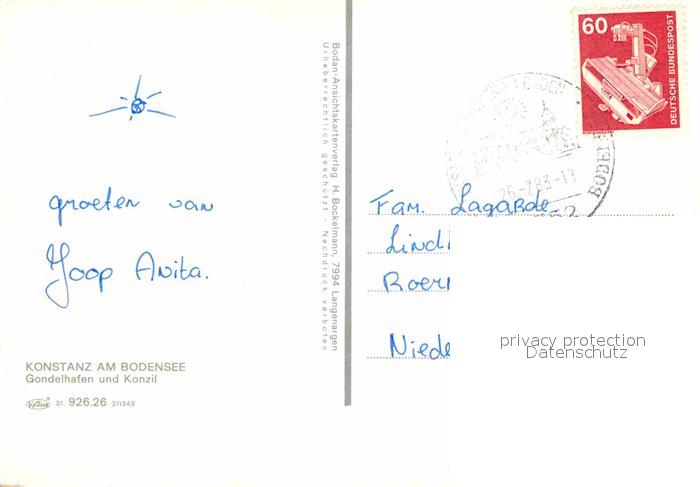 60
DEUTSCHE BUNDESPOST
26.-7.83-13
BODEN
groeten van
Joop Anita.
Fam. Lagarde
Lindl
Roer
Niede
privacy protection
Datenschutz
Bodan-Ansichtskartenverlag H. Bockelmann, 7994 Langenargen
Urheberrechtlich geschützt - Nachdruck verboten
KONSTANZ AM BODENSEE
Gondelhafen und Konzil
31 926.26 211349